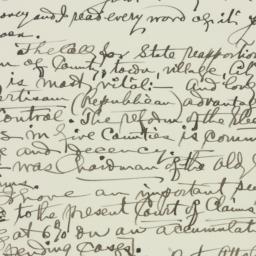 oney and I read every word of it. y
The call for State reapportion
n of County, town, village, cit
is most vital:- And long
artisan (republican) advantage
Control. The reform of the Elec
s in five Counties is comm
e and Decency.
was Chairman of the old
more an important
e to the present Court of Claims
e at 6% on an accumulat
pending cases].